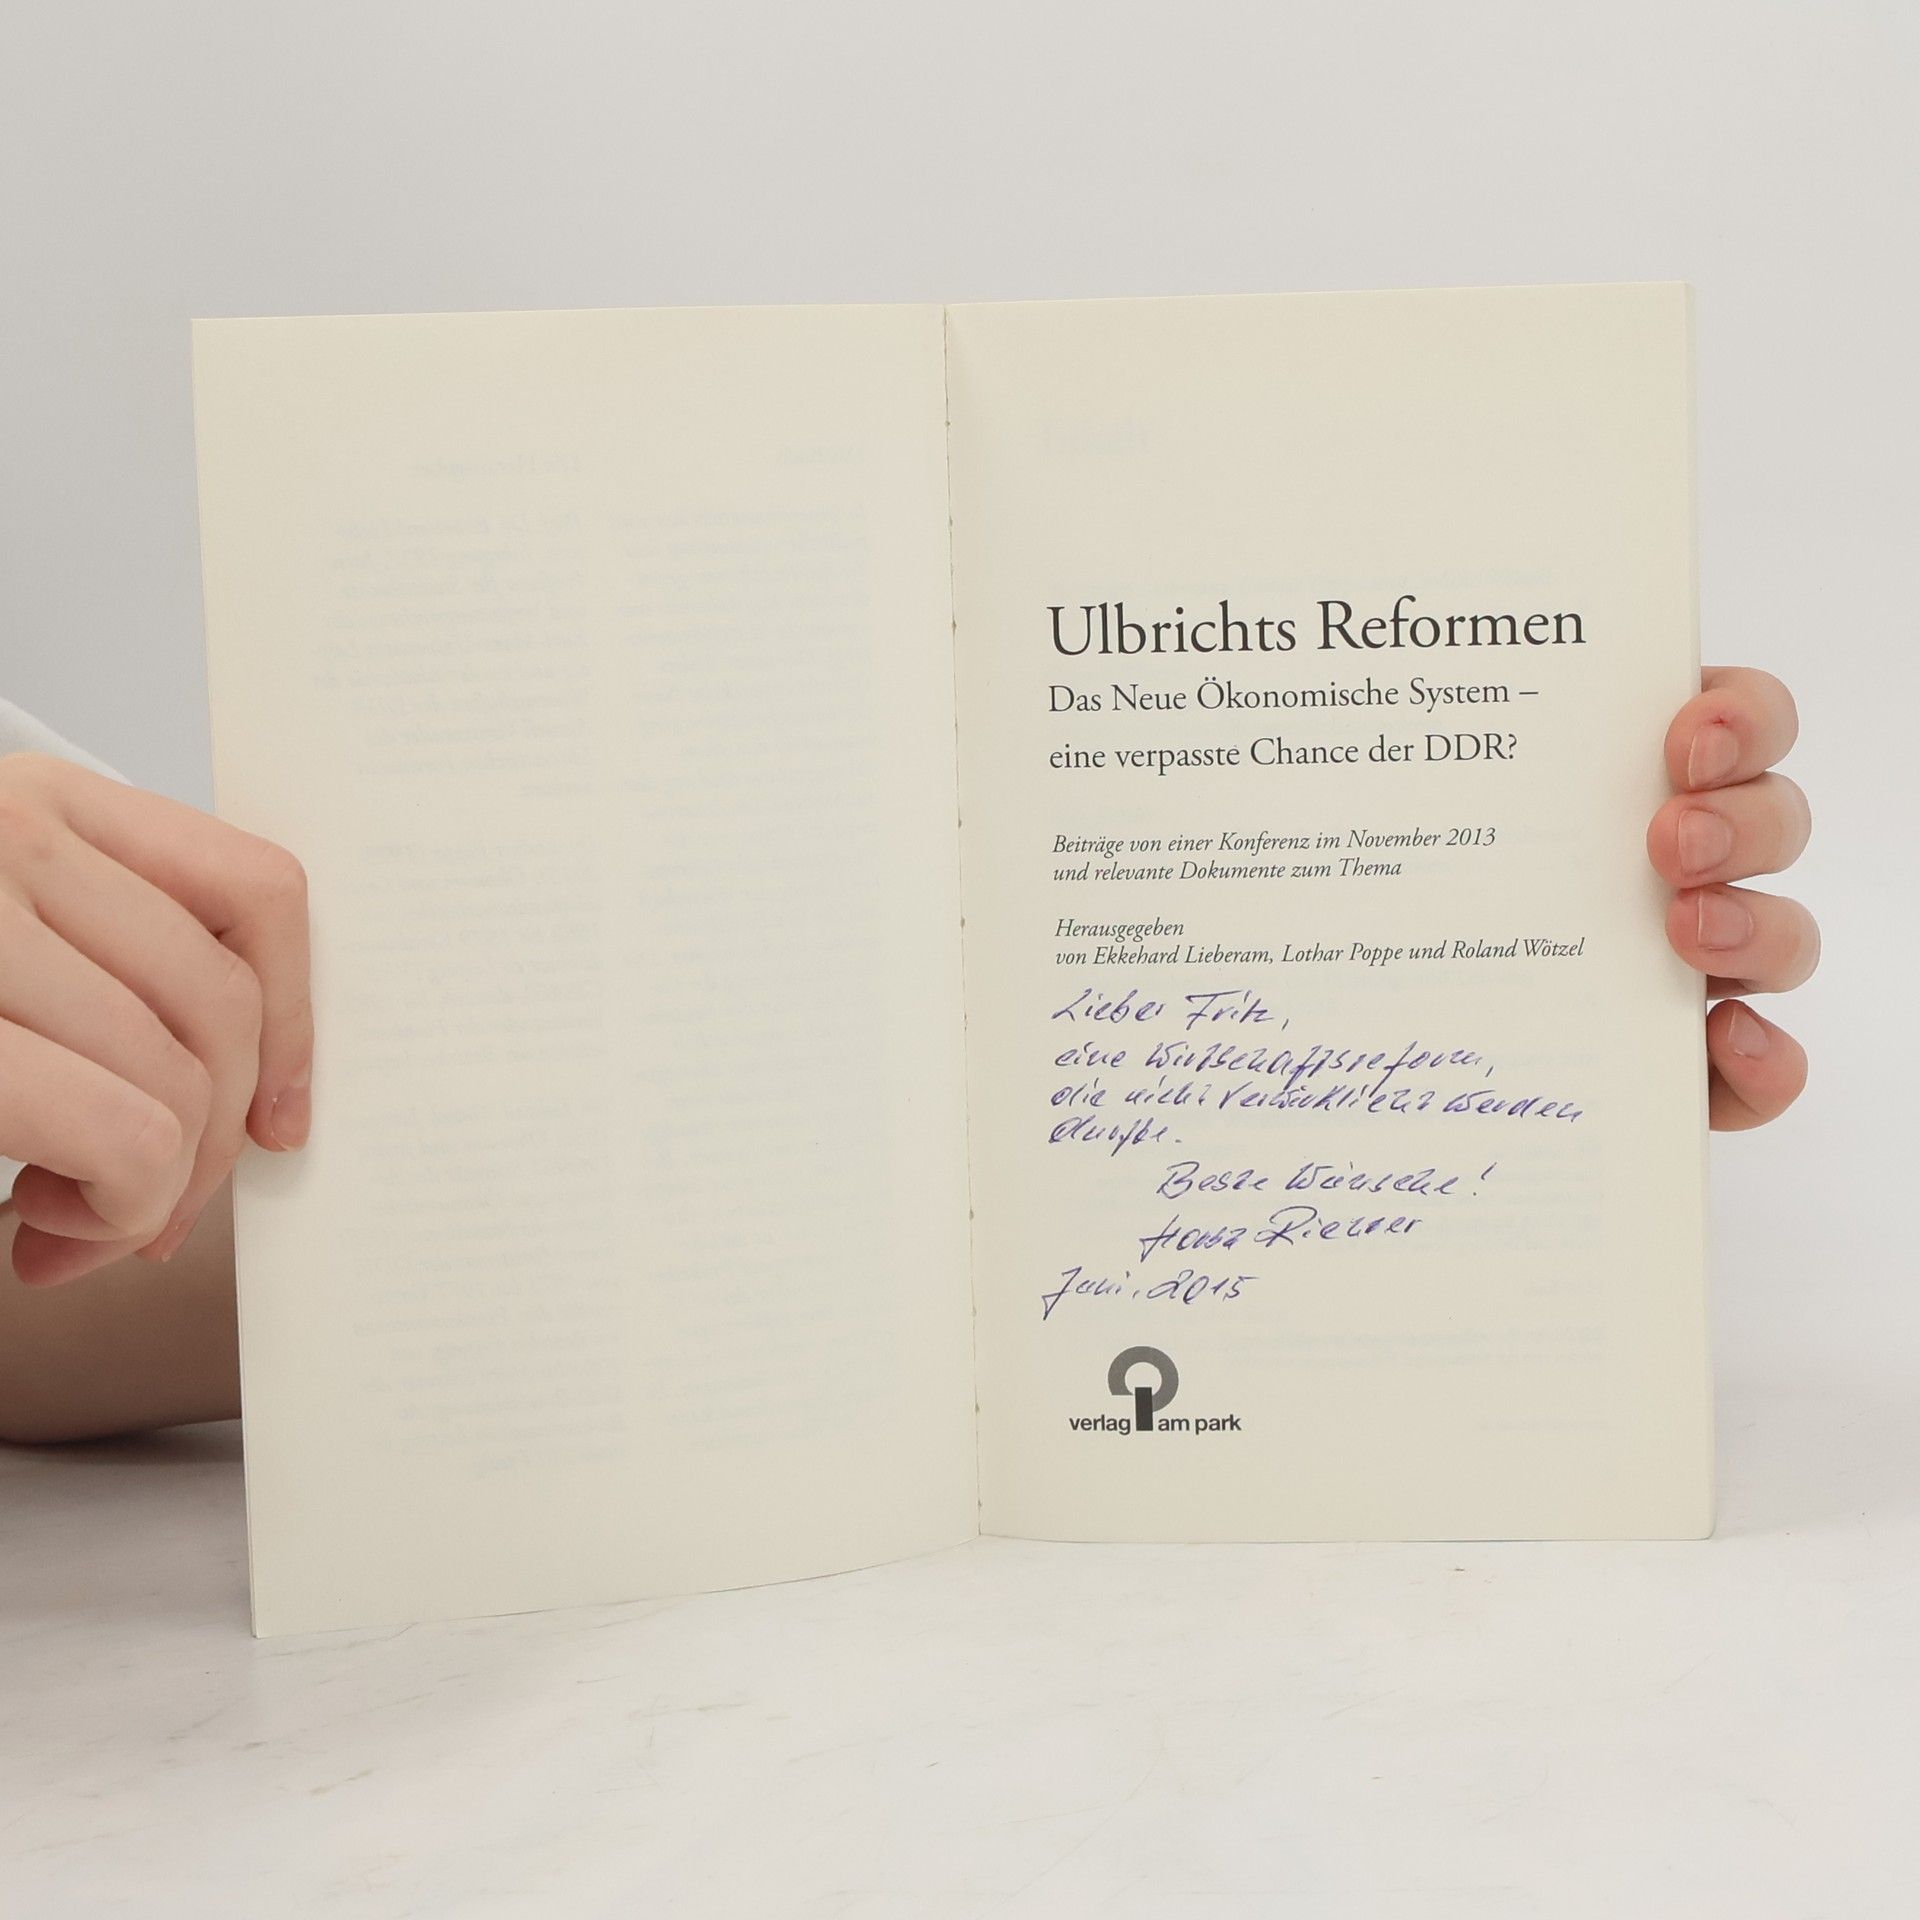 Ulbrichts Reformen
Das Neue Ökonomische System –
eine verpasste Chance der DDR?
Beiträge von einer Konferenz im November 2013
und relevante Dokumente zum Thema
Herausgegeben
von Ekkehard Lieberam, Lothar Poppe und Roland Wötzel
Lieber Fritz,
eine Wirtschaftsreform,
die nicht verwirklicht werden
durfte.
Beste Wünsche!
Horst Richter
Juni, 2015
verlag am park